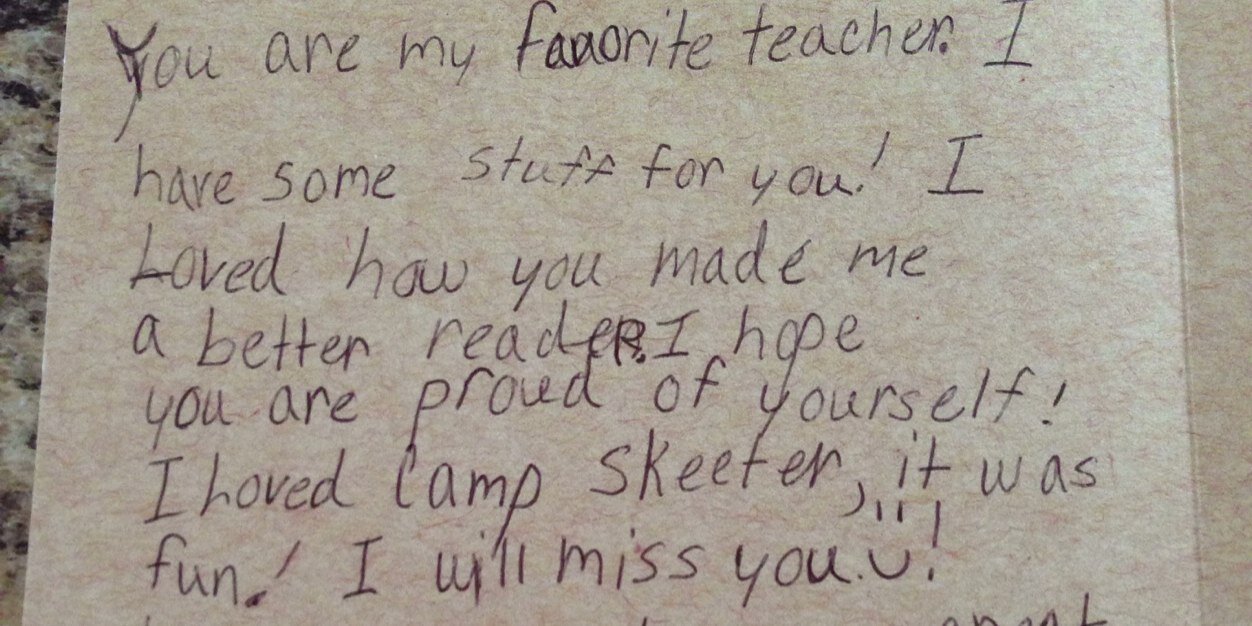 You are my favorite teacher. I
have some stuff for you! I
Loved how you made me
a better reader. I hope
you are proud of yourself!
I Loved Camp Skeeter, it was
fun! I will miss you. !